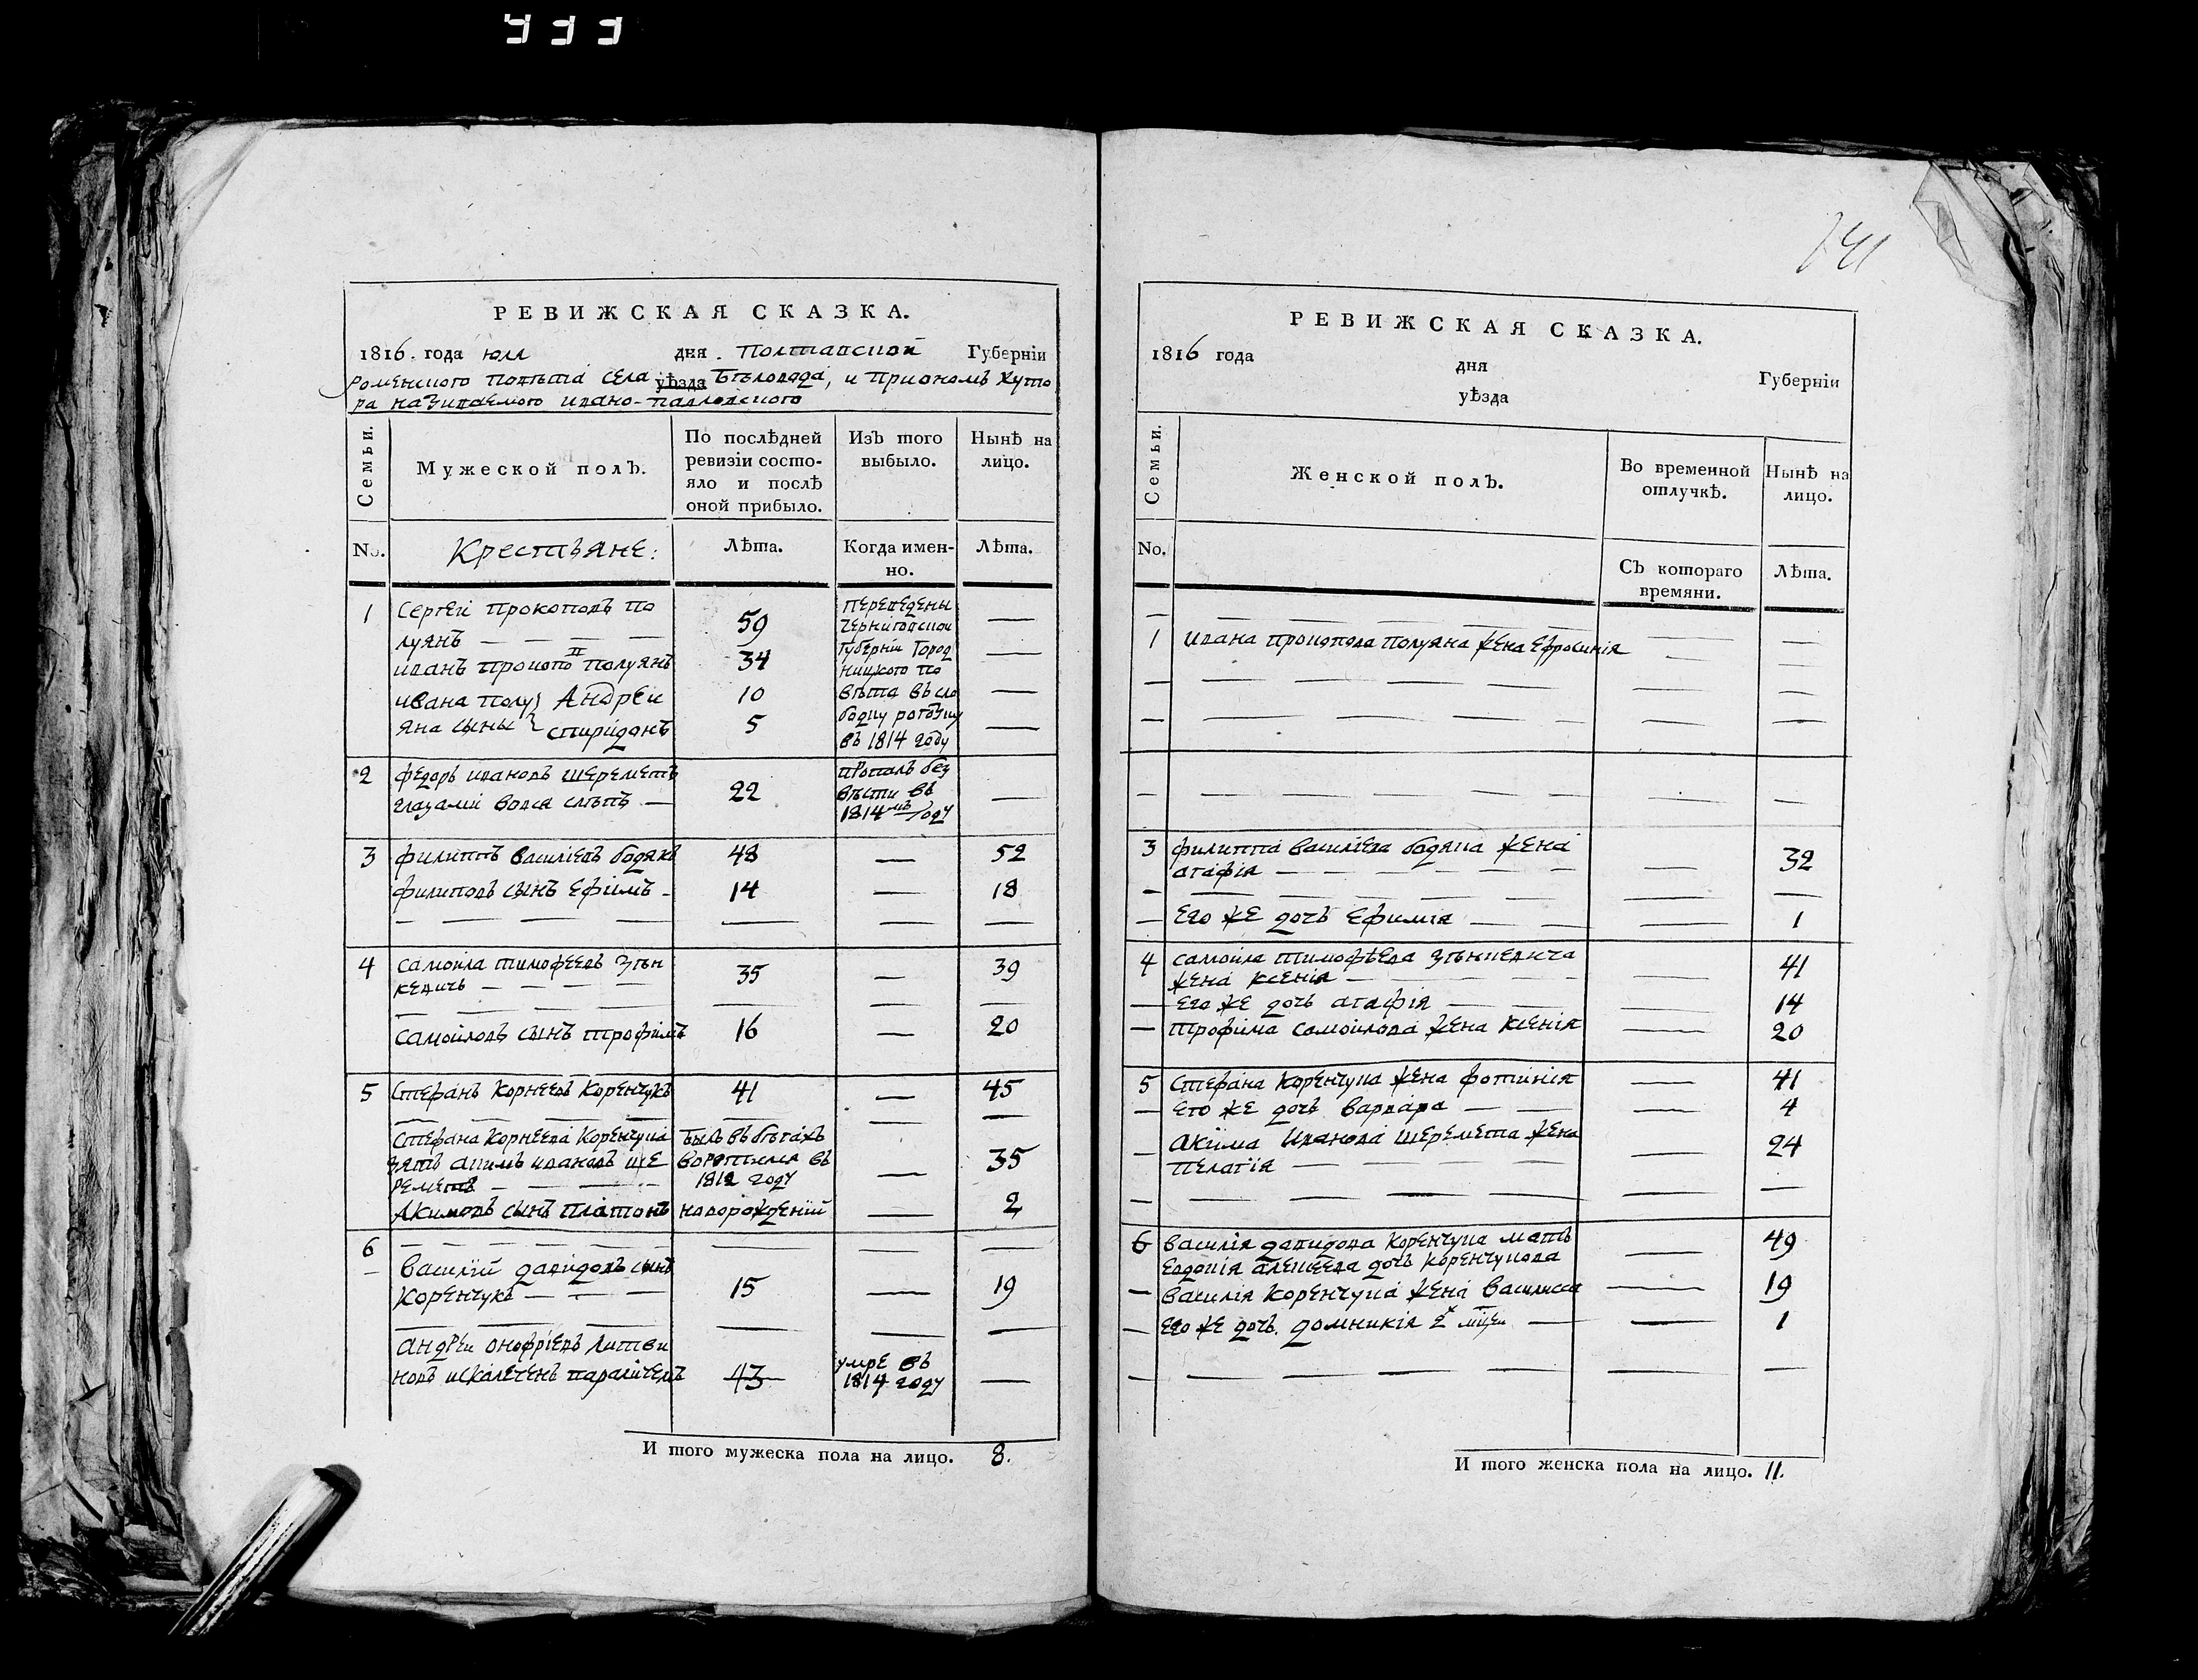 933
РЕВИЖСКАЯ СКАЗКА.
1816. года юля дня. Полтавской Губерніи
Роменского повѣта села уѣзда Бѣловода, и приономъ хуто
ра називаемого ивано-павловского
Семьи.
Мужеской полъ.
По послѣдней ревизіи состо-
яло и послѣ
оной прибыло.
Изъ того
выбыло.
Нынѣ на
лицо.
No. Крестьяне: Лѣта. Когда имен-
но. Лѣта.
1 Сергеi прокоповъ по
луянъ — — — — 59 —
иванъ прокопо полуянъ 34 —
ивана полу} Андреи 10 —
яна сыны } спиридонъ 5 —
переведены
черниговской
губерніи Город
ницкого по
вѣта въ сло
бодку
въ 1814 году
2 федоръ ивановъ шереметъ
глазами вовся слѣпъ — 22 —
пропалъ без
вѣсти въ
1814мъ году
3 филиппъ василіевъ бодякъ 48 — 52
филиповъ сынъ ефимъ - 14 — 18
4 самоила тимофеевъ Зѣн
кевичъ — — — — 35 — 39
самойловъ сынъ трофимъ 16 — 20
5 Стефанъ корнеевъ коренчукъ 41 — 45
стефана корнеева коренчука
зять акимъ ивановъ ше
реметъ — — — —
былъ въ бѣгахъ
воротился въ
1812 году — 35
Акимовъ сынъ платонъ новорожденій — 2
6 — — — — —
Василій давидовъ сынъ
коренчукъ — — — 15 — 19
андреи онофріевъ литви
новъ искалеченъ параличемъ 43
умре въ
1814 году —
И того мужеска пола на лицо. 8.
741
РЕВИЖСКАЯ СКАЗКА.
1816 года дня Губерніи
уѣзда
Семьи.
Женской полъ.
Во временной
отлучкѣ.
Нынѣ на
лицо.
No. Съ котораго
времяни. Лѣта.
1 ивана прокопова полуяна жена ефросинія — —
3 филиппа василіева бодяка жена
агафія — — — — — — 32
— его же дочь ефимія — — — 1
4 самойла тимофѣева зѣнкевича
жена ксенія — — 41
— его же дочь агафія — — — 14
— трофима самойлова жена ксенія — 20
5 стефана коренчука жена фотинія — 41
— его же дочь варвара — — — 4
— акима иванова шеремета жена
пелагія — — — — 24
6 василія давидова коренчука мать
евдокія алексеева дочь коренчукова — 49
— василія коренчука жена василиса — 19
— его же дочь. домникія 2х — — 1
И того женска пола на лицо. 11.